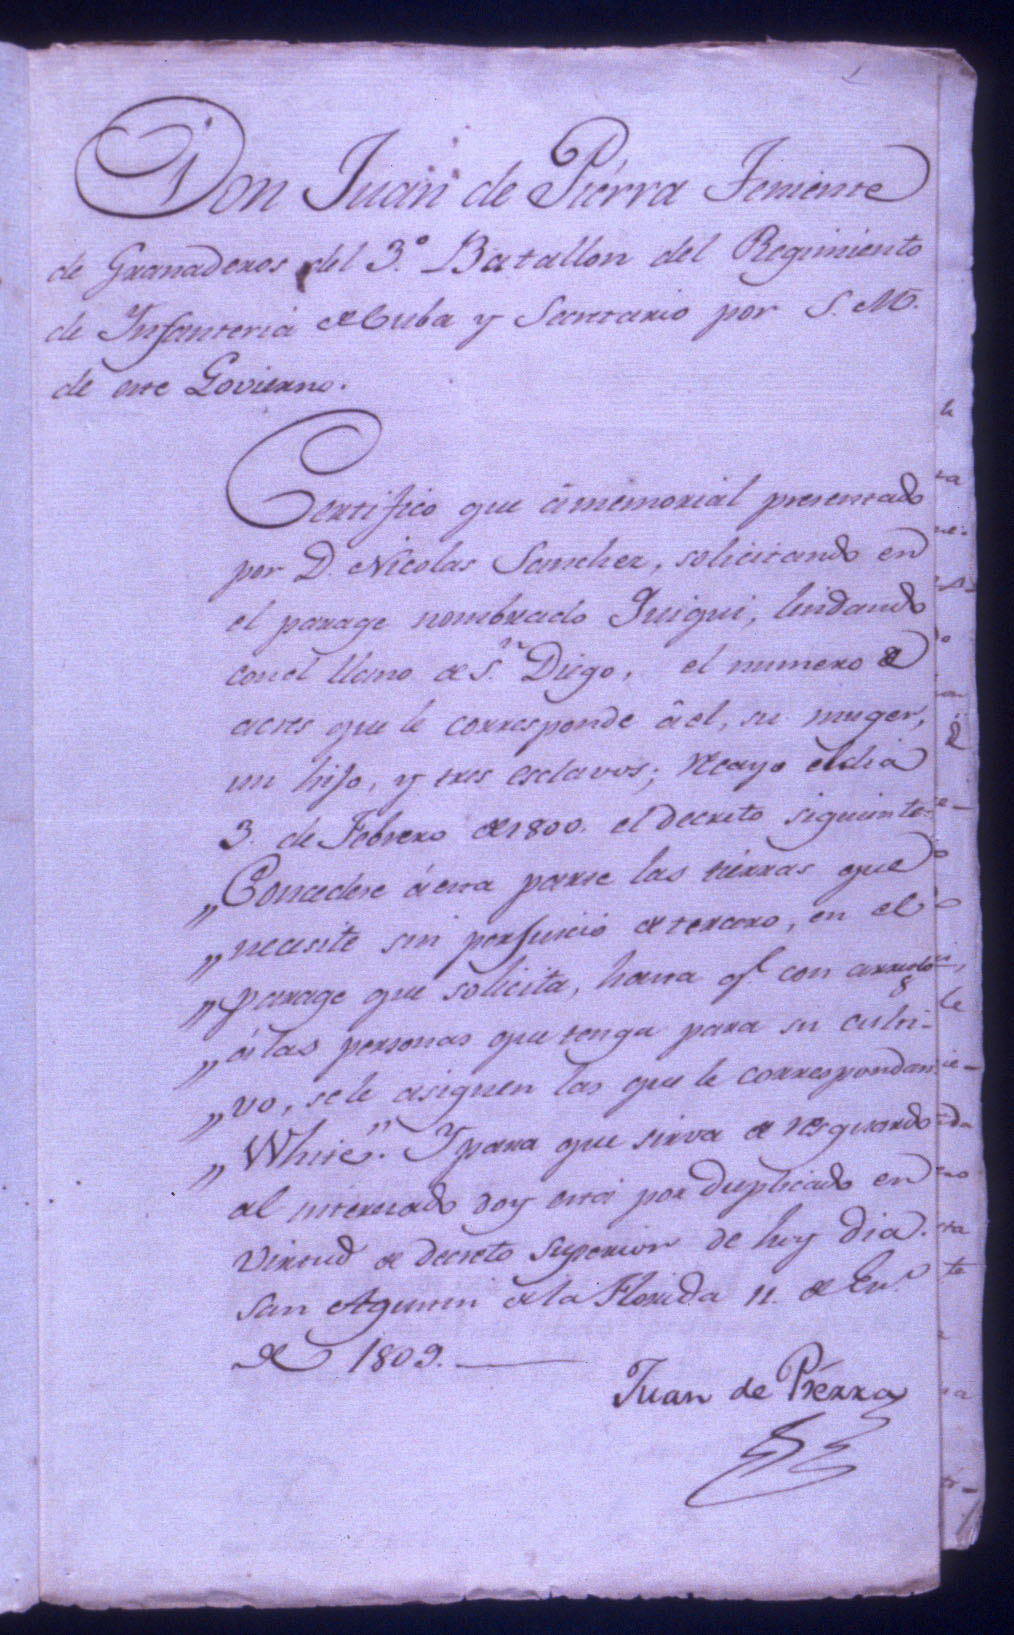 Don Juan de Piérra Teniente
de Granaderos del 3.º Batallon del Regimiento
de Infanteria de Cuba y Secretario por S. M.
de este Govierno.
Certifico que á memorial presentado
por D. Nicolas Sanchez, solicitando en
el parage nombrado Guigui, lindando
con el llano de S.n Diego, el numero de
acres que le corresponde á el, su muger,
un hijo, y tres esclavos; recayo el dia
3. de Febrero de 1800. el decreto siguiente.
„Concedese á esta parte las tierras que
„necesite sin perjuicio de tercero, en el
„parage que solicita, hasta q.e con arreglo
„á las personas que tenga para su culti-
„vo, se le asignen las que le correspondan
„White". Y para que sirva de resguardo
al interesado doy esta por duplicado en
virtud de decreto superior de hoy dia.
San Agustin de la Florida 11. de En.o
de 1809.
Juan de Piérra